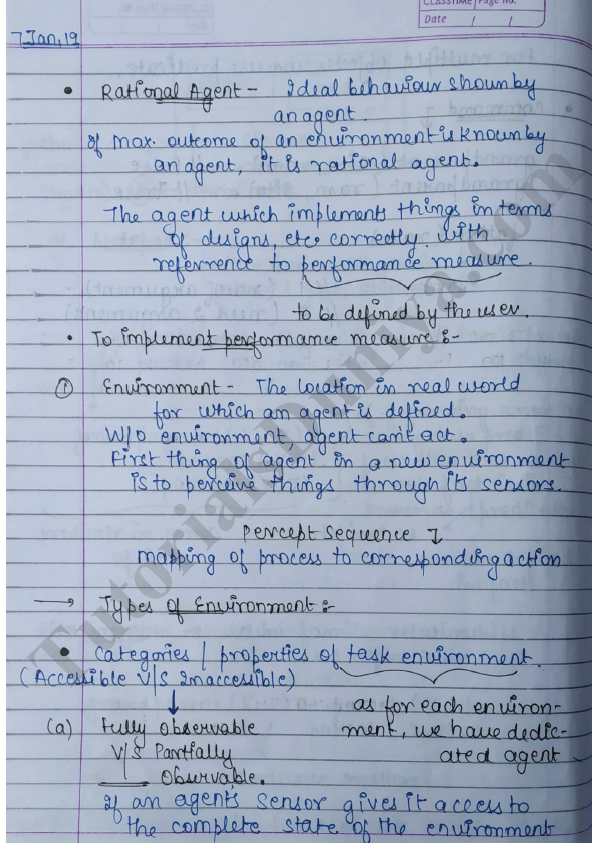 CLASSTIME Page No.
Date / /
7 Jan, 19
• Rational Agent - Ideal behaviour shown by
an agent.
If max. outcome of an environment is known by
an agent, it is rational agent.
The agent which implements things in terms
of designs, etc. correctly with
referrence to performance measure.
to be defined by the user.
• To implement performance measure :-
① Environment - The location in real world
for which an agent is defined.
W/O environment, agent can't act.
First thing of agent in a new environment
is to perceive things through its sensors.
Percept Sequence ↴
mapping of process to corresponding action
→ Types of Environment :-
• Categories / properties of task environment.
(Accessible V/S Inaccessible)
as for each environ-
ment, we have dedic-
ated agent.
(a) Fully Observable
V/S Partially
Observable.
If an agent's sensor gives it access to
the complete state of the environment
TutorialsDuniya.com